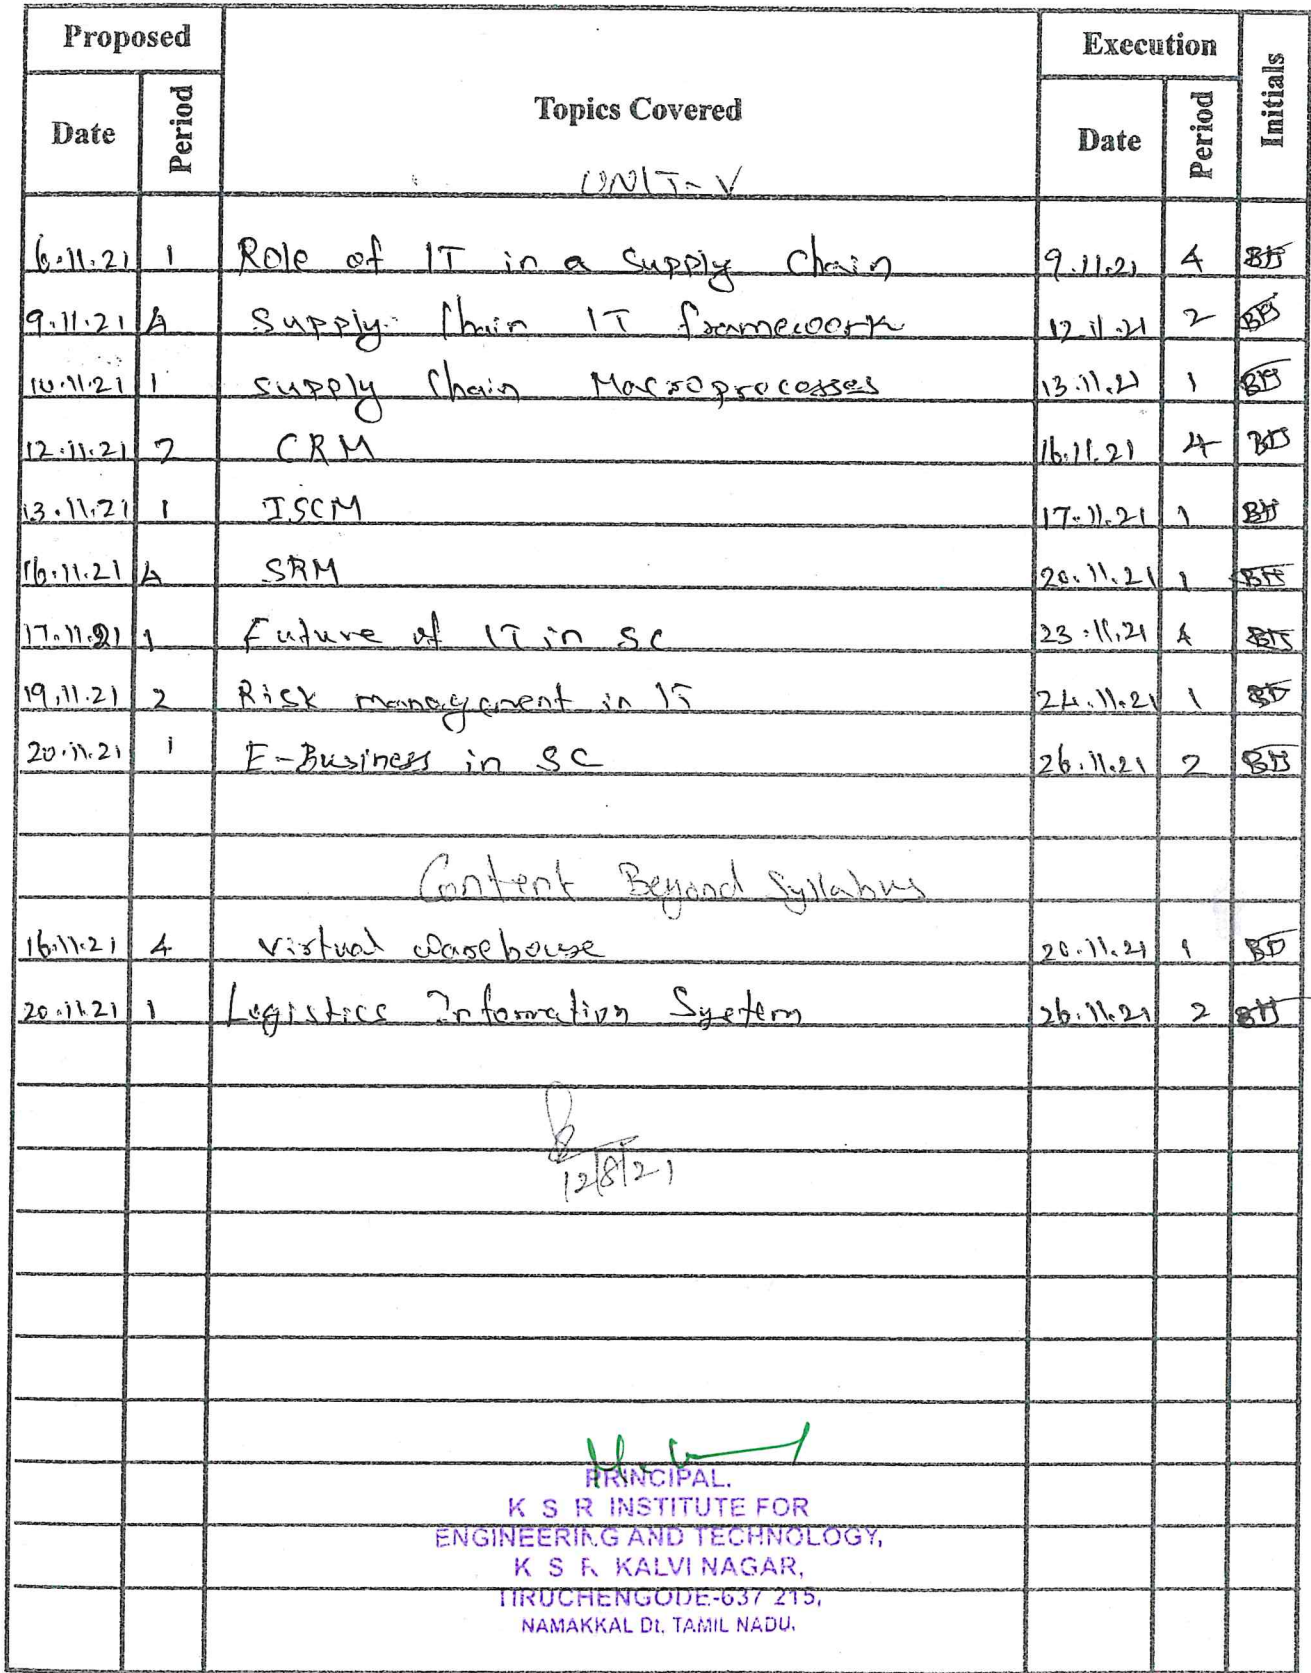 Proposed Execution
Date Period Topics Covered Date Period Initials
UNIT-V
6.11.21 1 Role of IT in a Supply Chain 9.11.21 4
9.11.21 4 Supply Chain IT framework 12.11.21 2
10.11.21 1 Supply Chain Macroprocesses 13.11.21 1
12.11.21 2 CRM 16.11.21 4
13.11.21 1 ISCM 17.11.21 1
16.11.21 4 SRM 20.11.21 1
17.11.21 1 Future of IT in SC 23.11.21 4
19.11.21 2 Risk management in IT 24.11.21 1
20.11.21 1 E-Business in SC 26.11.21 2
Content Beyond Syllabus
16.11.21 4 Virtual Warehouse 20.11.21 1
20.11.21 1 Logistics Information System 26.11.21 2
12/8/21
PRINCIPAL.
K S R INSTITUTE FOR
ENGINEERING AND TECHNOLOGY,
K S R KALVI NAGAR,
TIRUCHENGODE-637 215,
NAMAKKAL Dt. TAMIL NADU.